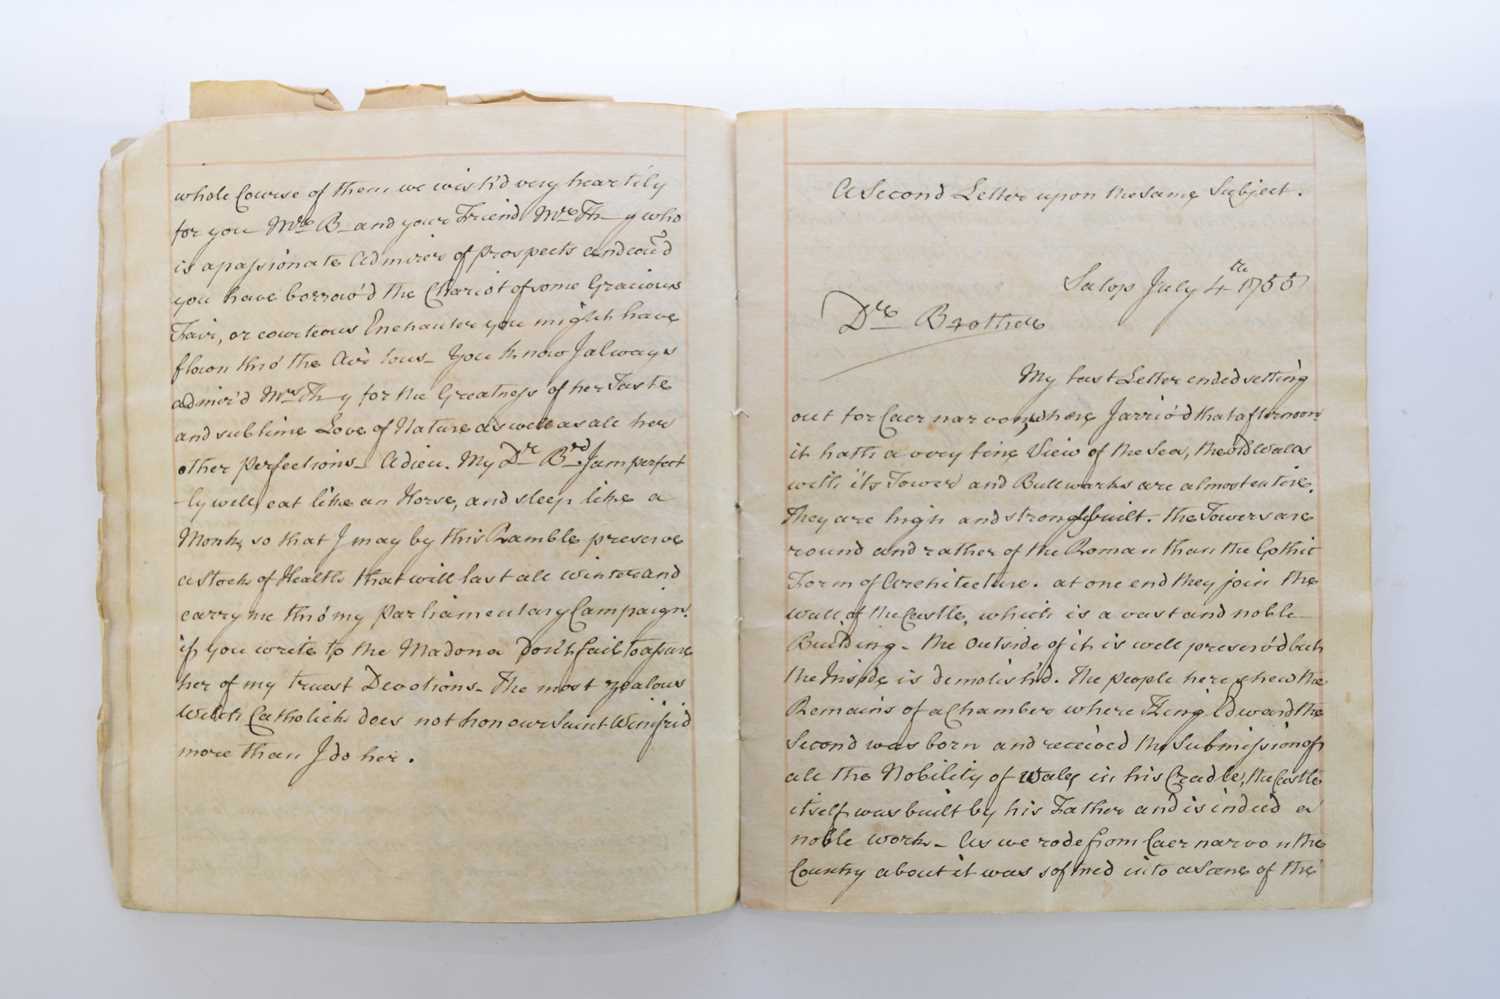 whole Course of them we wish'd very heartily
for you Mrs B- and your Friend Mrs Th-y who
is a passionate Admirer of prospects and cou'd
you have borrow'd the Chariot of some Gracious
Fair, or courteous Enchanter you might have
flown thro' the Air to us- You know I always
admir'd Mrs Th-y for the Greatness of her Taste
and sublime Love of Nature as well as all her
other perfections- Adieu. My Dr Brd I am perfect
-ly well, eat like an Horse, and sleep like a
Monk, so that I may by this Ramble preserve
a stock of Health that will last all winter and
carry me thro' my Parliamentary Campaign.
if you write to the Madona Don't fail to assure
her of my truest Devotions- The most zealous
Welch Catholick does not honour Saint Winifrid
more than I do her.
A Second Letter upon the same Subject.
Salop July 4th 1755
Dr Brother
My last Letter ended setting
out for Caernarvon, where I arriv'd that afternoon
it hath a very fine View of the Sea, the old Walls
with its Tower and Bullworks are almost entire.
They are high and strongly built- the Towers are
round and rather of the Roman than the Gothic
Form of Architecture. at one end they join the
wall, of the Castle, which is a vast and noble
Building- the outside of it is well preserv'd but
the Inside is demolish'd. The people here shew the
Remains of a Chamber where King Edward the
Second was born and received the submission of
all the Nobility of Wales in his Cradle, the Castle
itself was built by his Father and is indeed a
noble work- As we rode from Caernarvon the
Country about it was softned into a scene of the